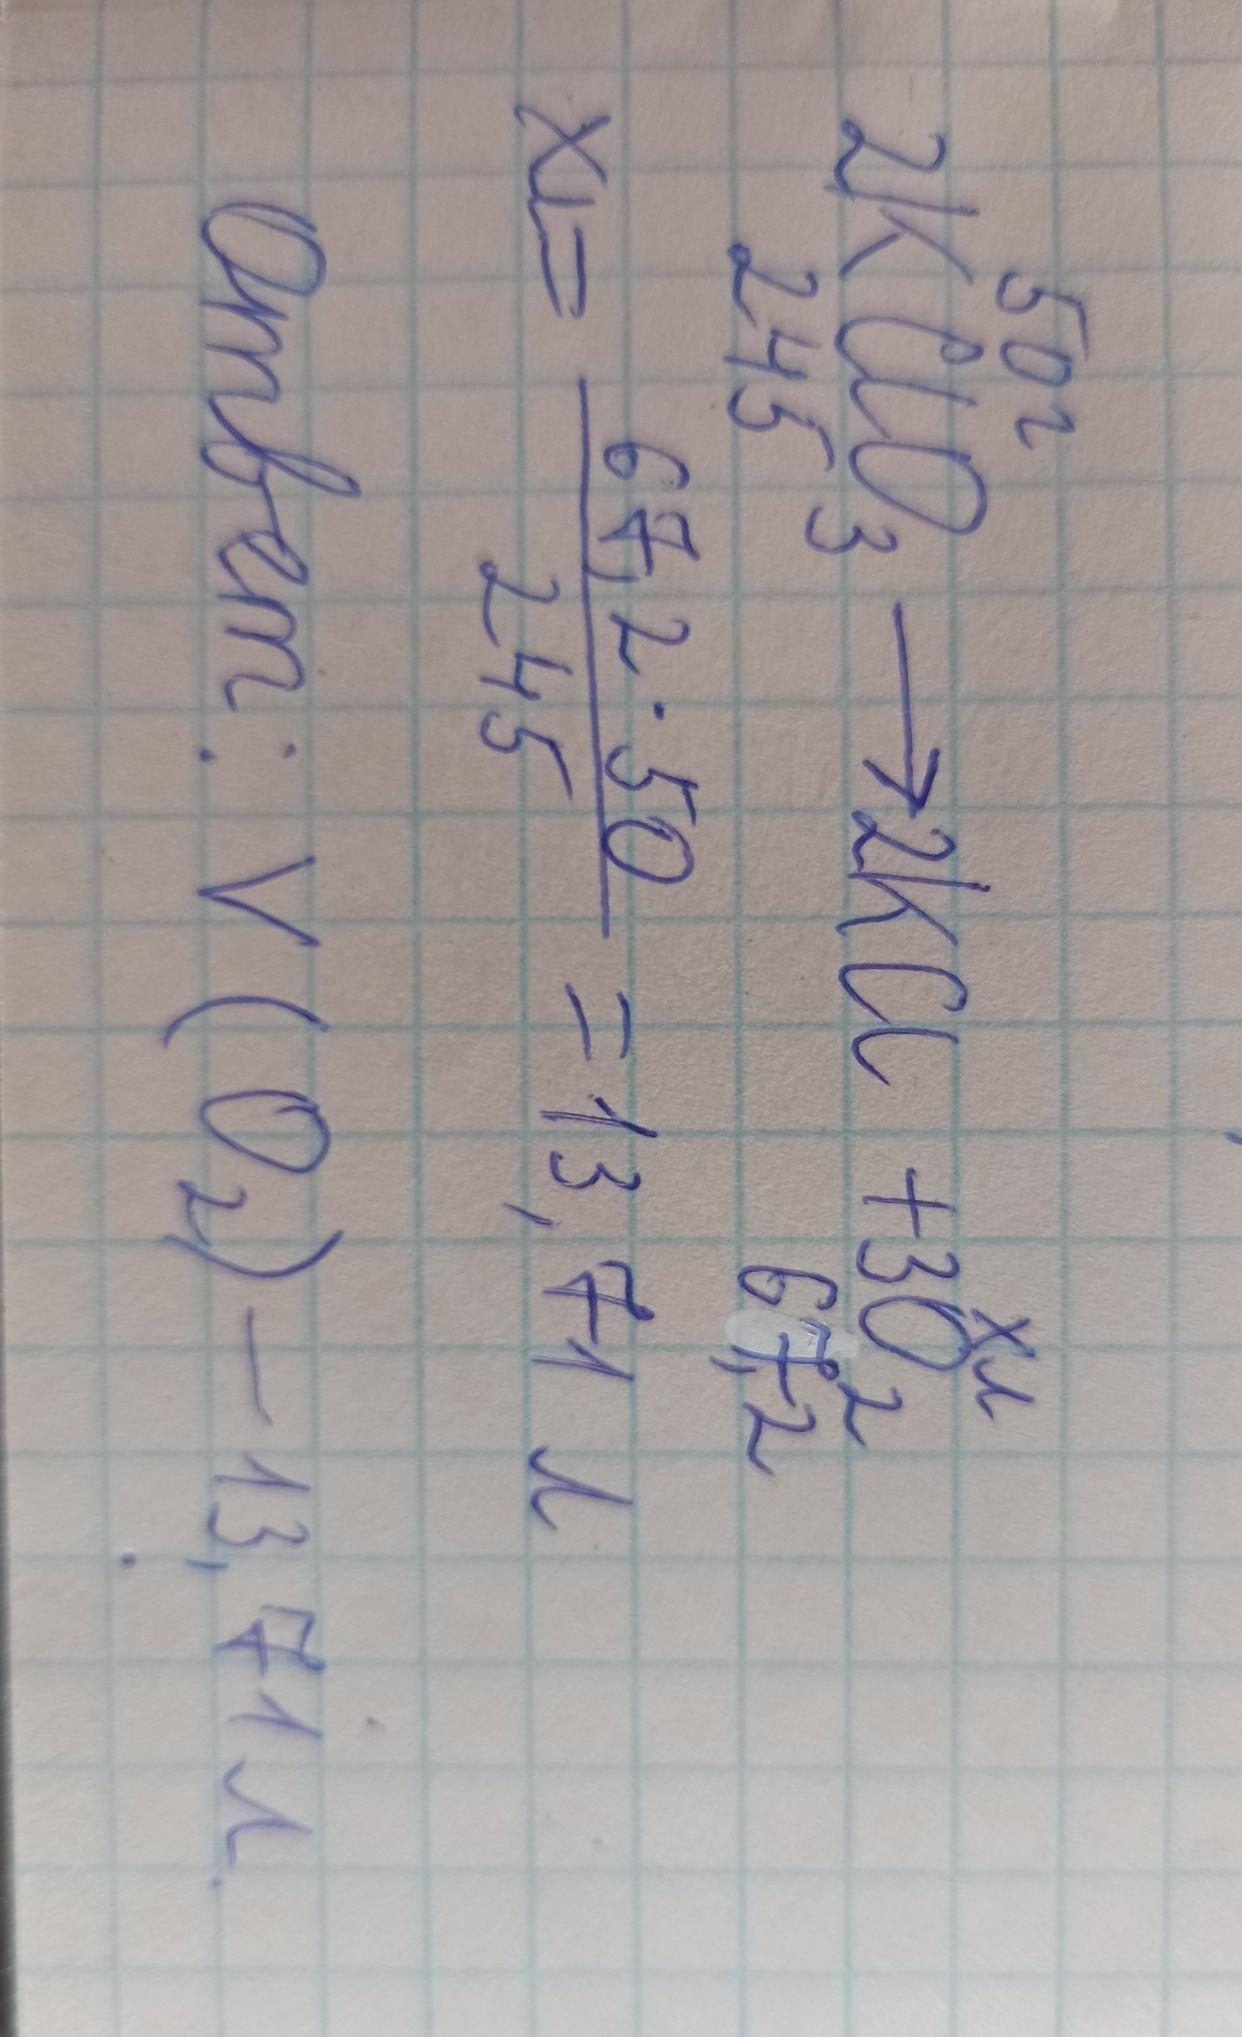 50г хл
2KClO₃ → 2KCl + 3O₂
245 67,2
хл = 67,2 · 50 / 245 = 13,71 л
Ответ: V (O₂) – 13,71 л.